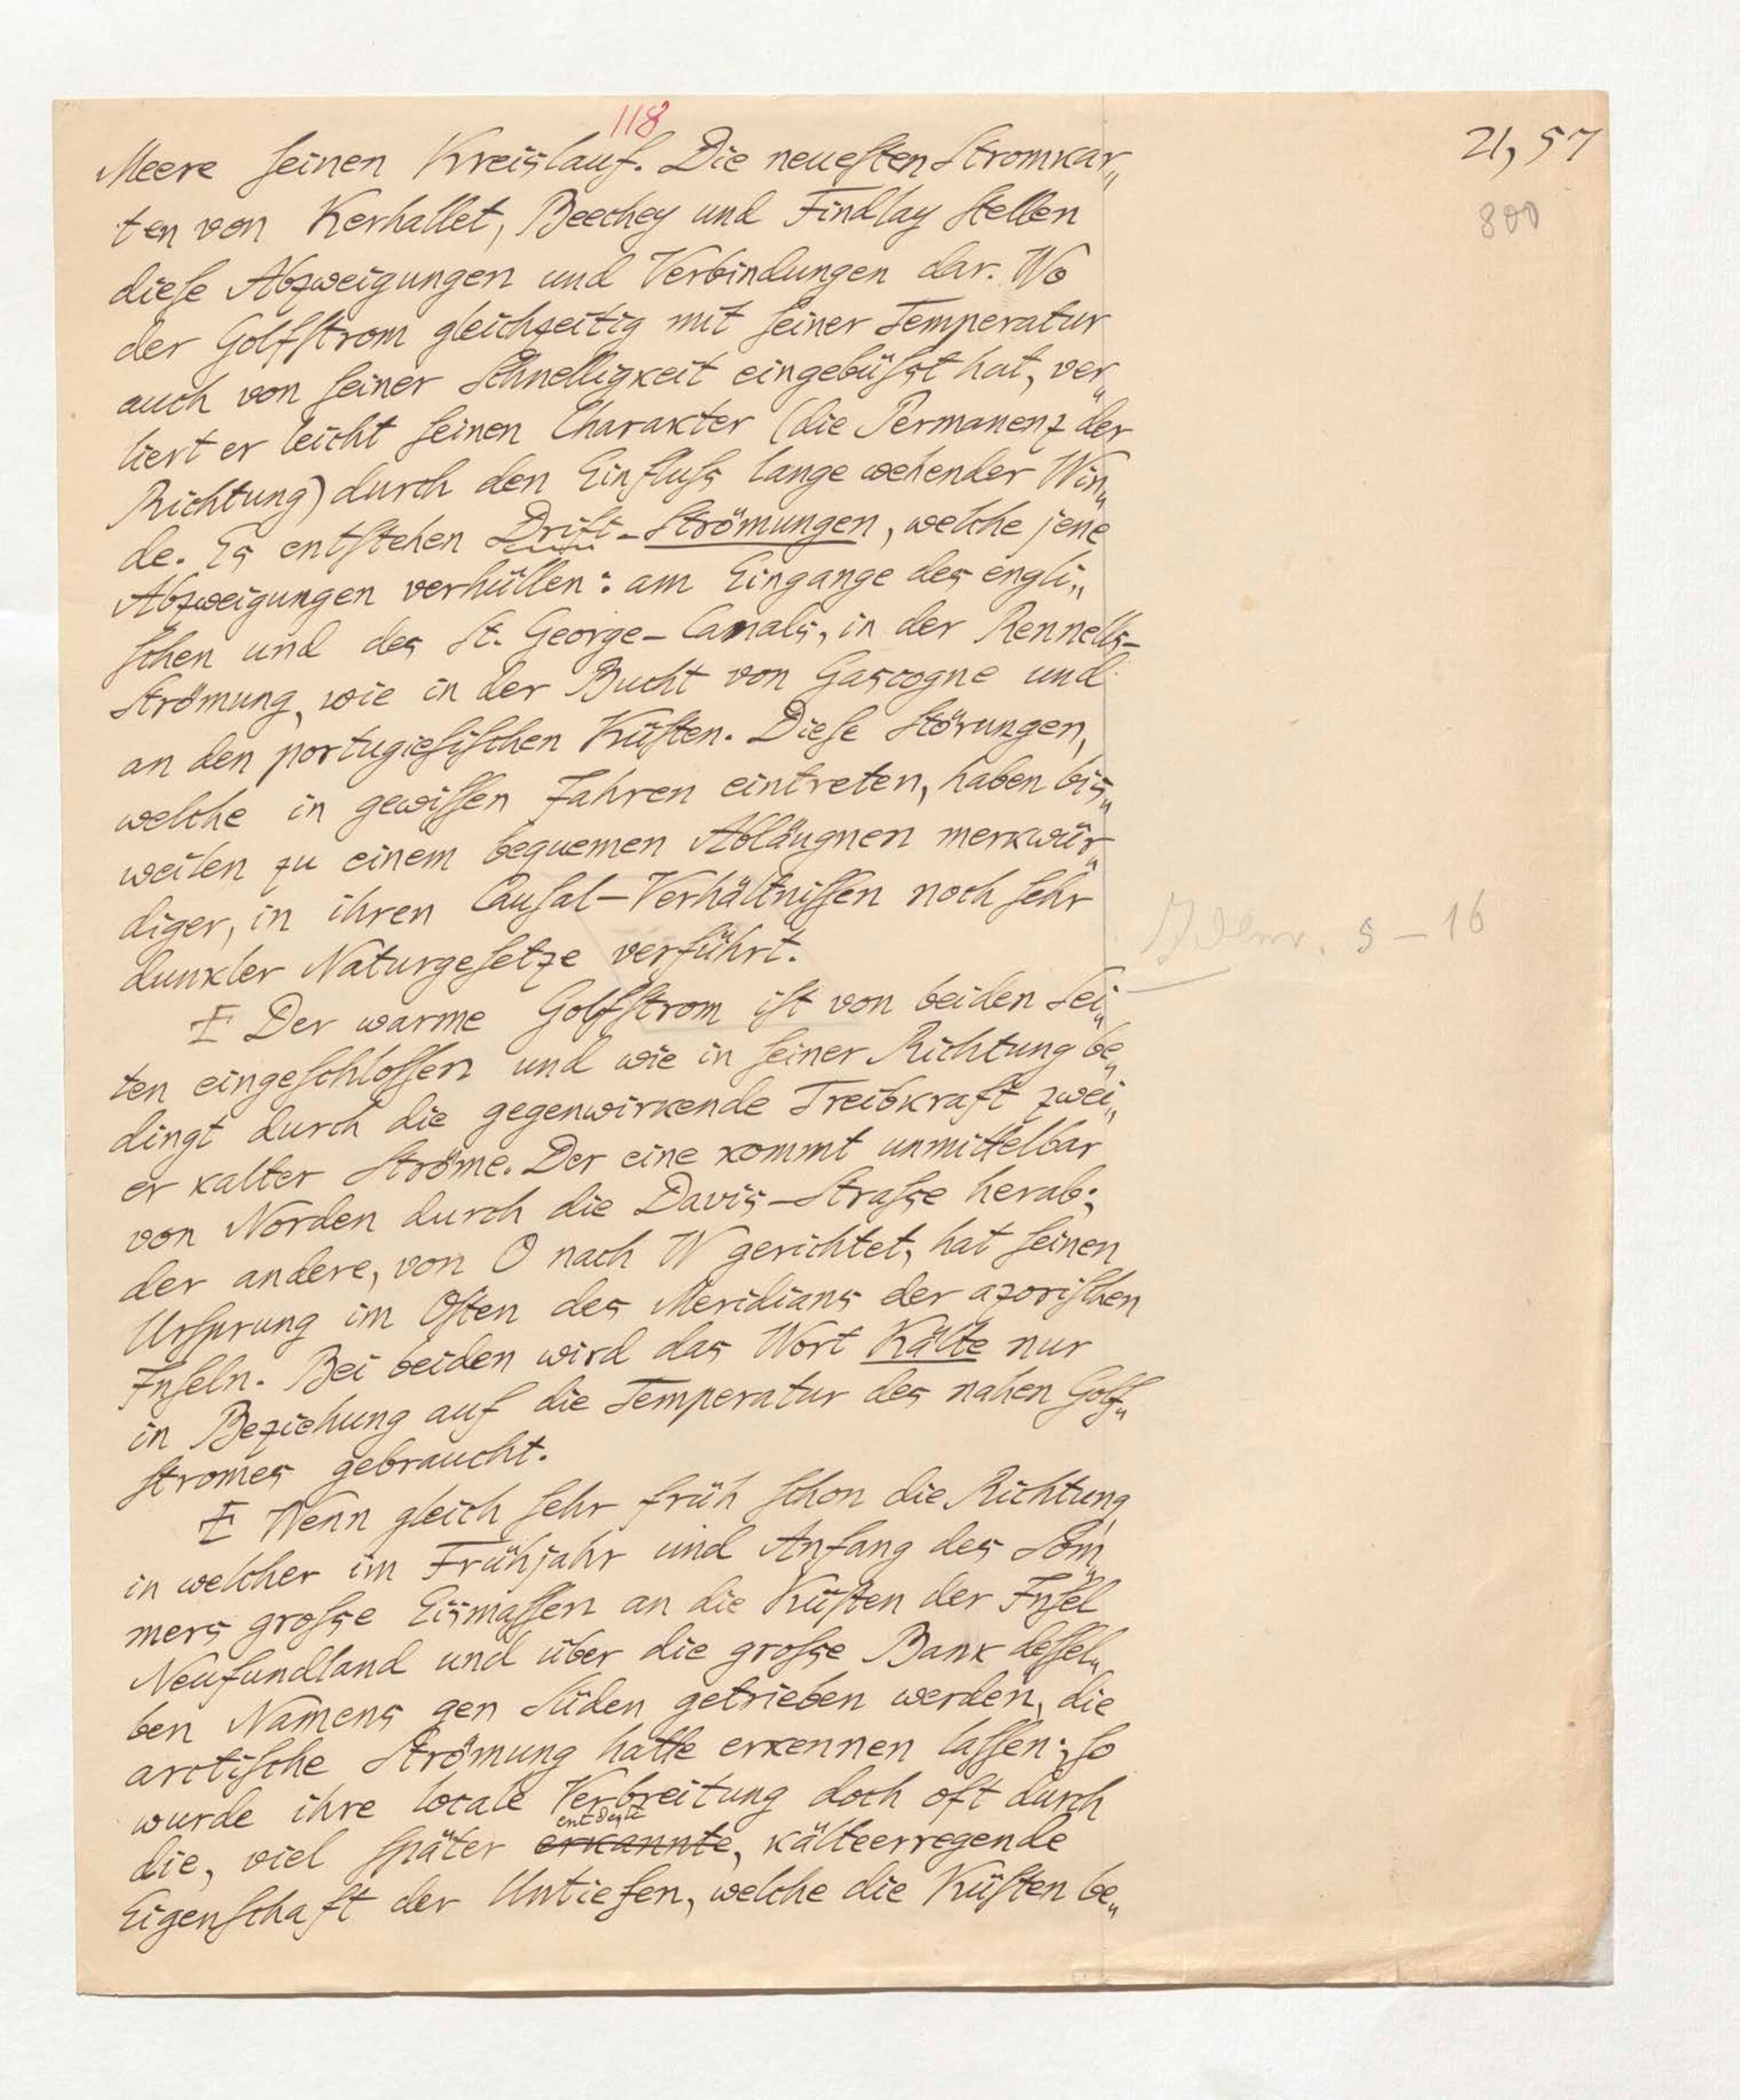 118
21, 57
800
Meere seinen Kreislauf. Die neuesten Stromkar„
ten von Kerhallet, Beechey und Findlay stellen
diese Abzweigungen und Verbindungen dar. Wo
der Golfstrom gleichzeitig mit seiner Temperatur
auch von seiner Schnelligkeit eingebüßt hat, ver„
liert er leicht seinen Charakter (die Permanenz der
Richtung) durch den Einfluß lange wehender Win„
de. Es entstehen Drift-Strömungen, welche jene
Abzweigungen verhüllen: am Eingange des engli„
schen und des St. George-Canals, in der Rennells-
Strömung, wie in der Bucht von Gascogne und
an den portugiesischen Küsten. Diese Störungen,
welche in gewissen Jahren eintreten, haben bis„
weilen zu einem bequemen Abläugnen merkwür„
diger, in ihren Causal-Verhältnissen noch sehr
dunkler Naturgesetze verführt.
5 – 16
E Der warme Golfstrom ist von beiden Sei„
ten eingeschlossen und wie in seiner Richtung be„
dingt durch die gegenwirkende Treibkraft zwei„
er kalter Ströme. Der eine kommt unmittelbar
von Norden durch die Davis-Straße herab;
der andere, von O nach W gerichtet, hat seinen
Ursprung im Osten des Meridians der azorischen
Inseln. Bei beiden wird das Wort Kälte nur
in Beziehung auf die Temperatur des nahen Golf„
stromes gebraucht.
E Wenn gleich sehr früh schon die Richtung,
in welcher im Frühjahr und Anfang des Som̄„
mers große Eismassen an die Küsten der Insel
Neufundland und über die große Bank dessel„
ben Namens gen Süden getrieben werden, die
arctische Strömung hatte erkennen lassen; so
wurde ihre locale Verbreitung doch oft durch
entdeckte
die, viel später erkannte, kälteerregende
Eigenschaft der Untiefen, welche die Küsten be„